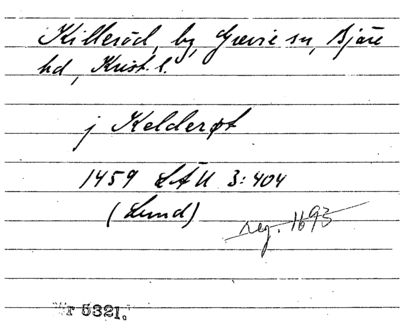 Killeröd, by, Grevie sn, Bjäre
hd, Krist. l.
j Kelderøt
1459 LÄU 3:404
(Lund)
reg. 1693
r 5321.